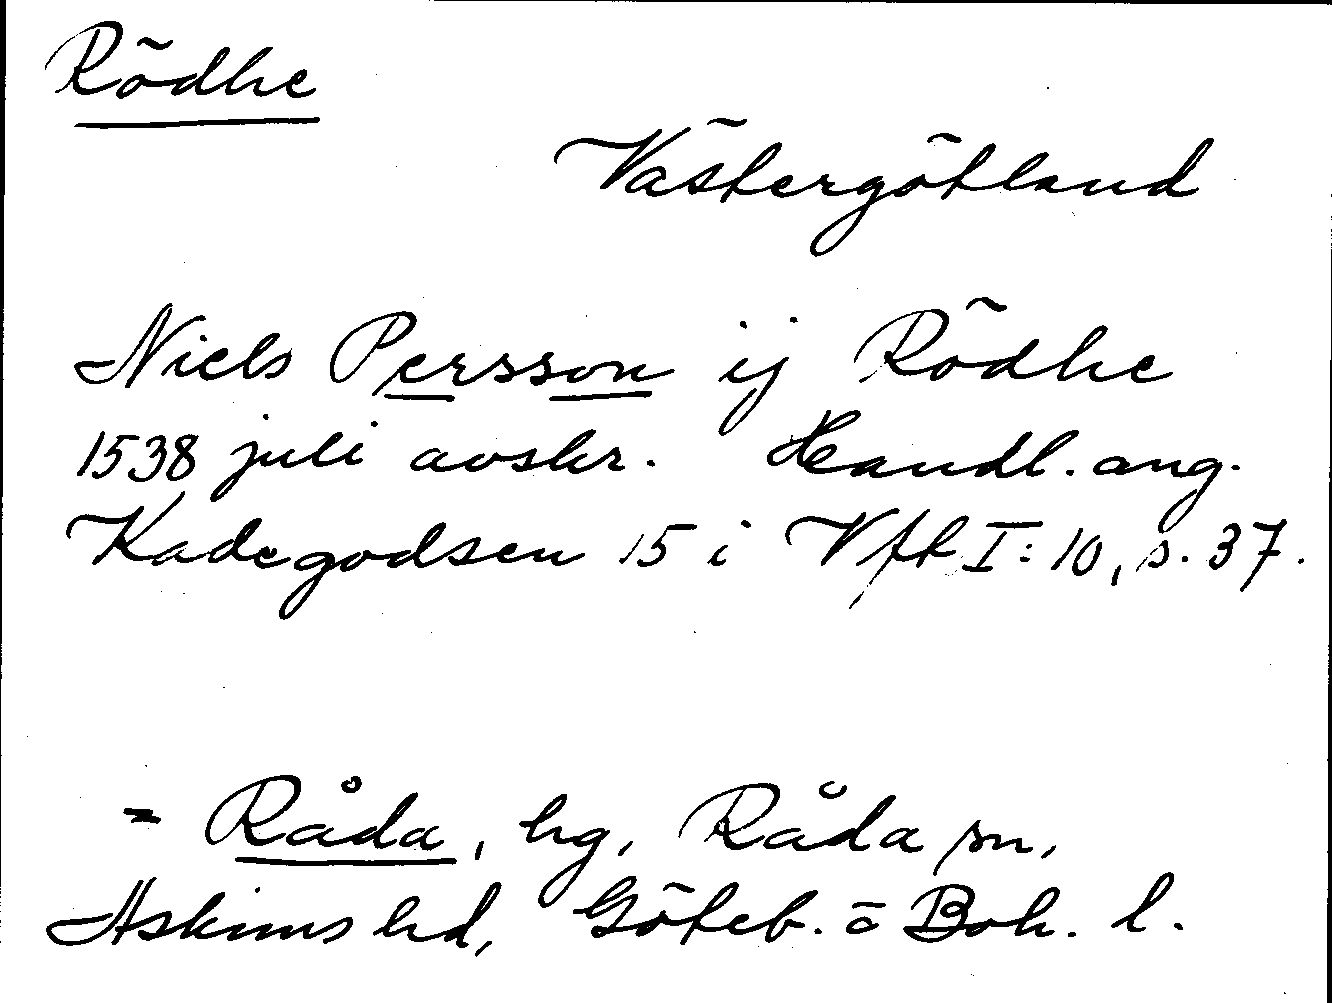 Rödhe
Västergötland
Niels Persson ij Rödhe
1538 juli avskr. Handl. ang.
Kadegodsen 15 i Vfl I: 10, s. 37.
= Råda, hg, Råda sn,
Askims hd, Göteb. o Boh. l.